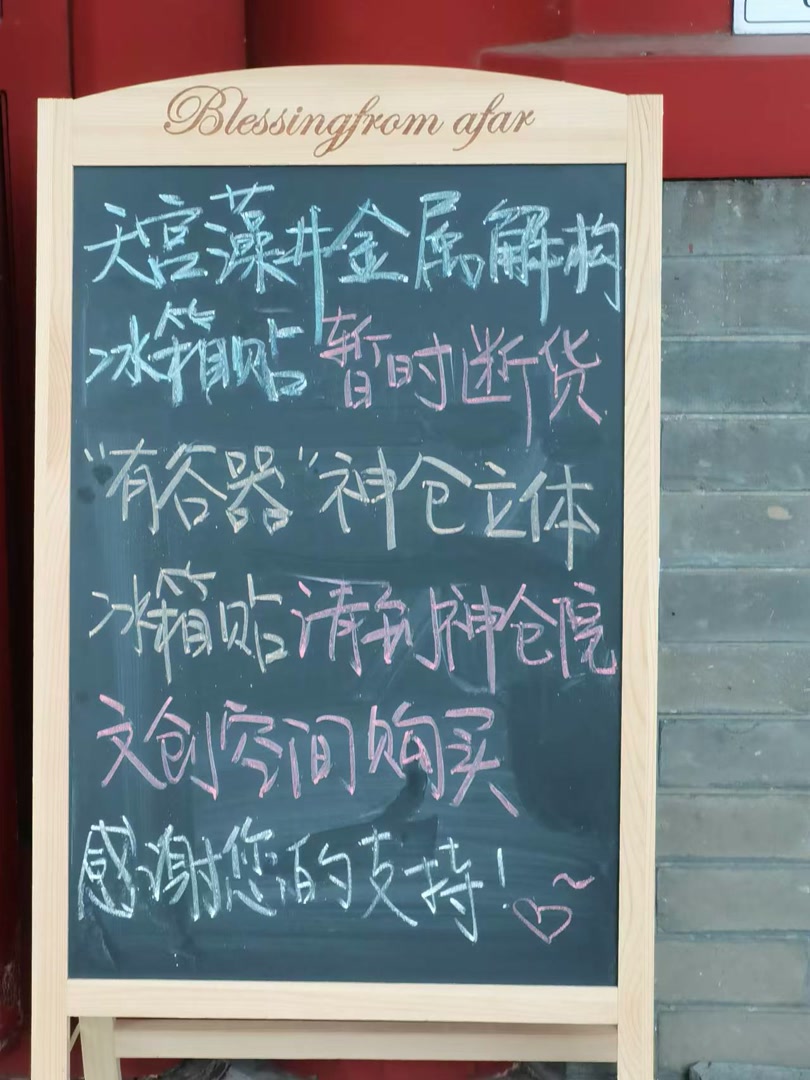 Blessingfrom afar
天宫藻井金属解构
冰箱贴 暂时断货
“有谷器”神仓立体
冰箱贴 请到神仓院
文创空间购买
感谢您的支持!